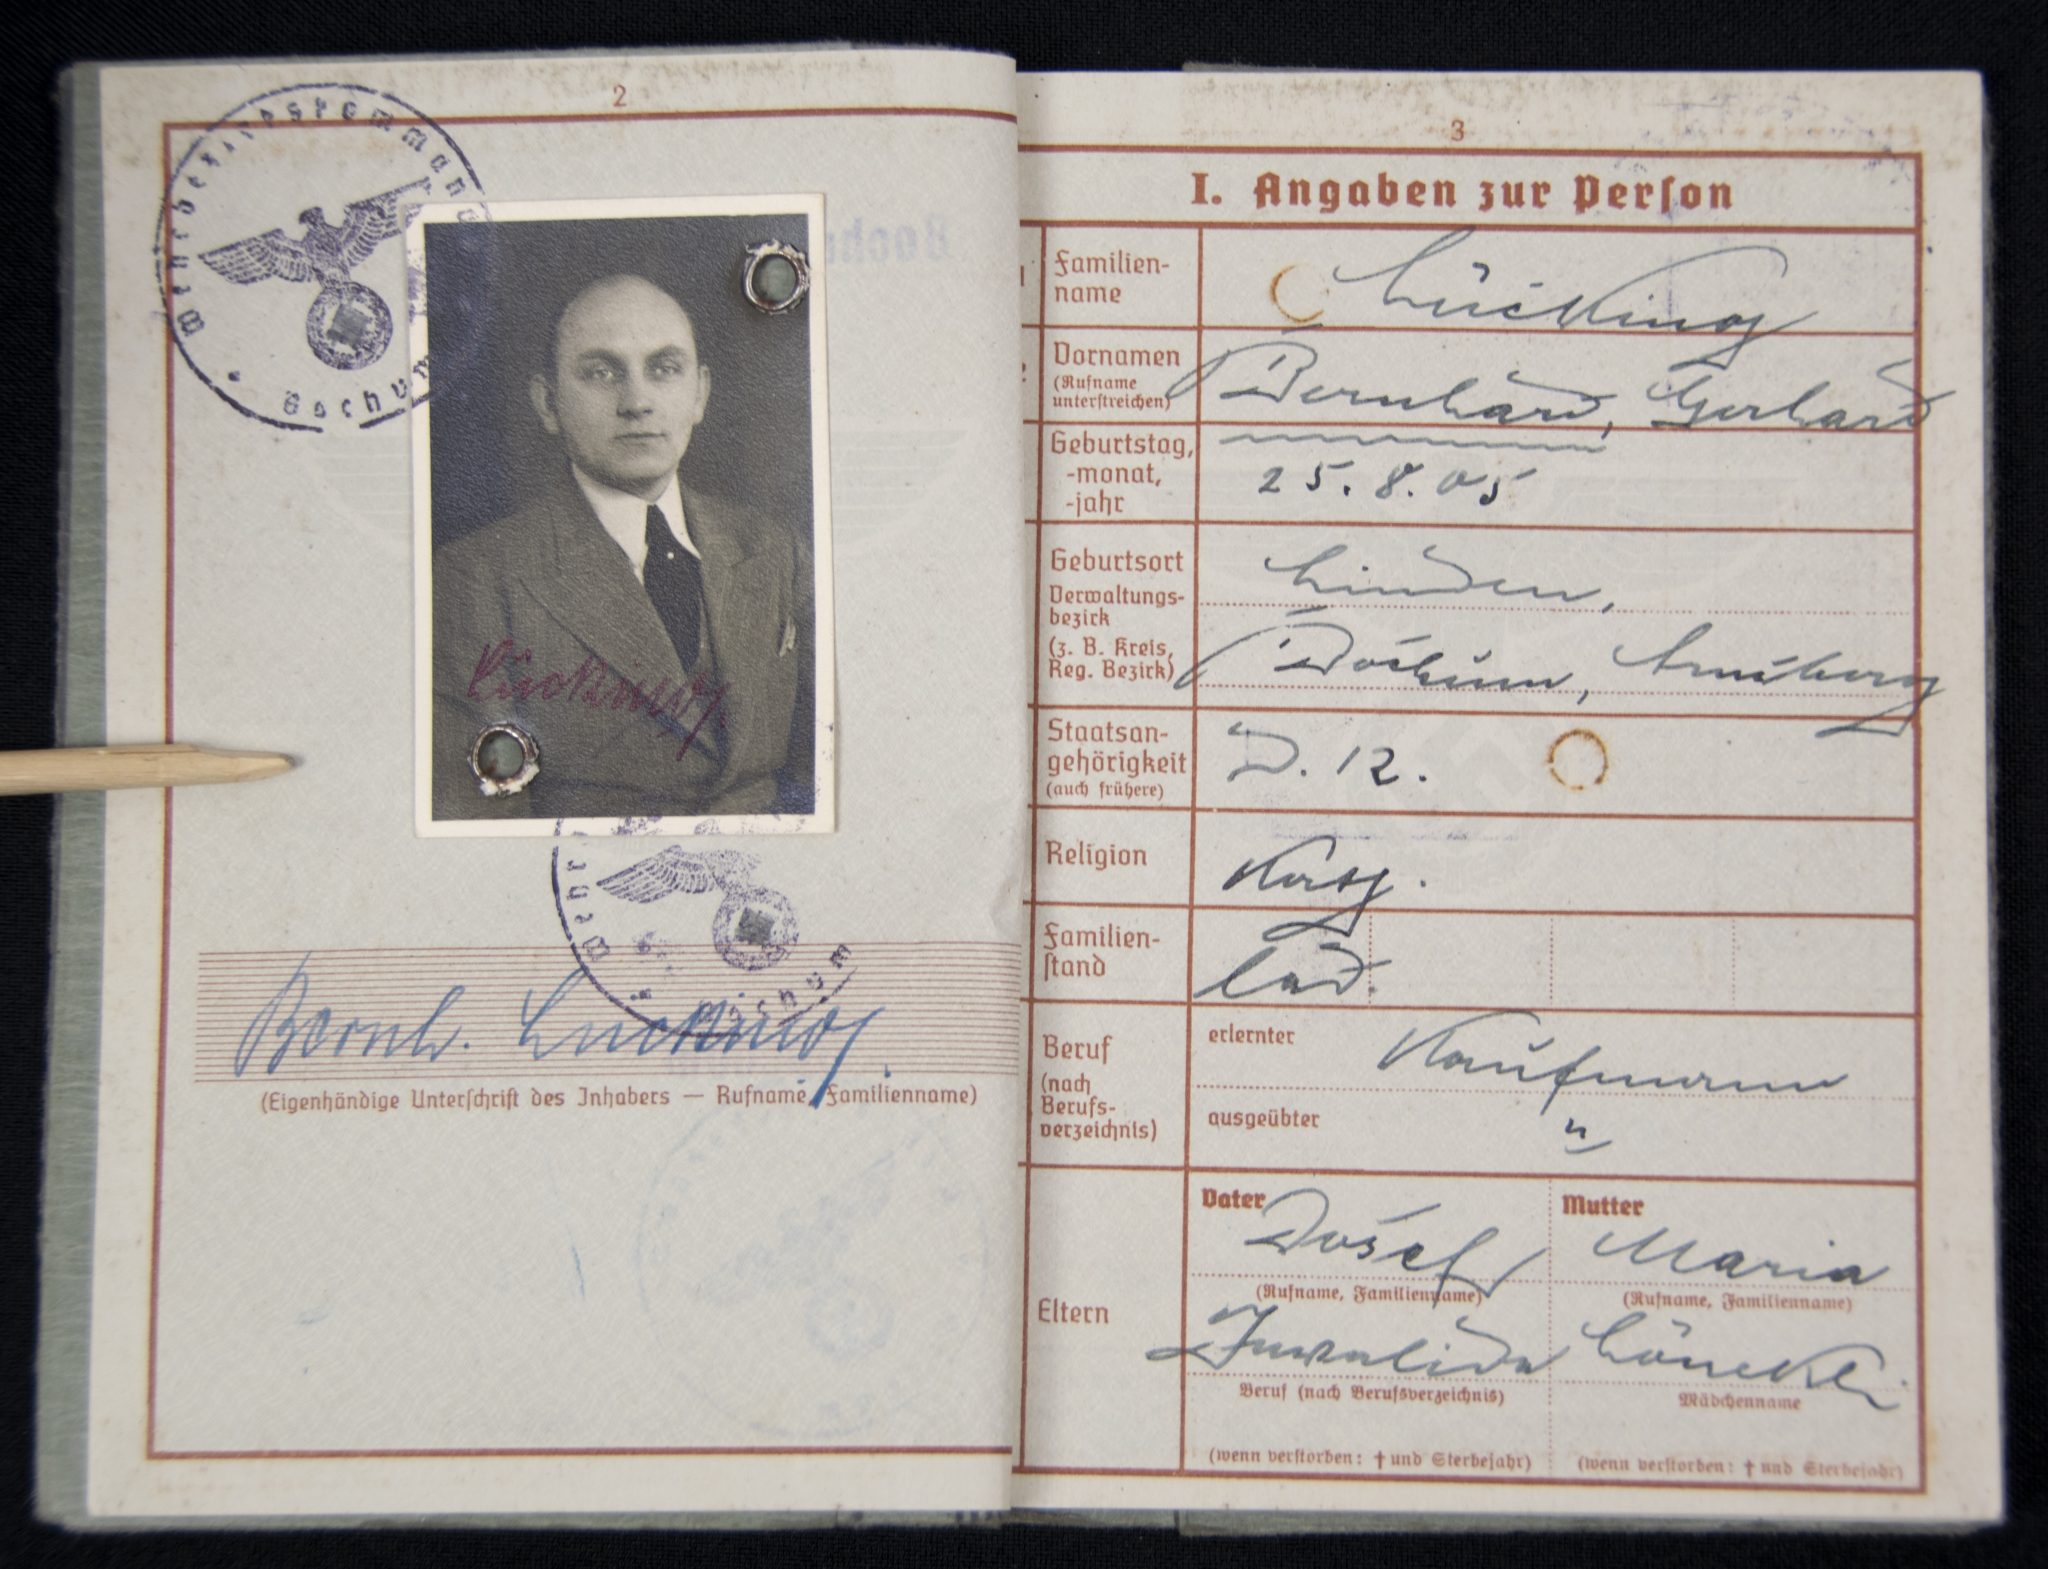 2
Wehrbezirkskommando
Bochum
Lücking
Bochum
Bernh. Lücking
(Eigenhändige Unterschrift des Inhabers — Rufname, Familienname)
3
I. Angaben zur Person
Familien-
name
Lücking
Vornamen
(Rufname
unterstreichen)
Bernhard, Gerhard
Geburtstag,
-monat,
-jahr
25.8.05
Geburtsort
Verwaltungs-
bezirk
(z. B. Kreis,
Reg. Bezirk)
Linden,
Bochum, Arnsberg
Staatsan-
gehörigkeit
(auch frühere)
D. R.
Religion
Kath.
Familien-
stand
led.
Beruf
(nach
Berufs-
verzeichnis)
erlernter
Kaufmann
ausgeübter
"
Eltern
Vater
Josef
(Rufname, Familienname)
Invalide
Beruf (nach Berufsverzeichnis)
(wenn verstorben: † und Sterbejahr)
Mutter
Maria
(Rufname, Familienname)
Mädchenname
(wenn verstorben: † und Sterbejahr)